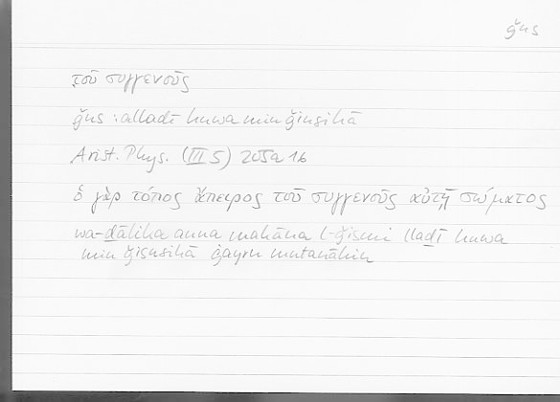 ǧns
τοῦ συγγενοῦς
ǧns : alladī huwa min ǧinsihā
Arist. Phys. (III 5) 205a16
ὁ γὰρ τόπος ἄπειρος τοῦ συγγενοῦς αὐτῇ σώματος
wa-ḏālika anna makāna l-ǧismi llaḏī huwa
min ǧinsihā ġayru mutanāhin